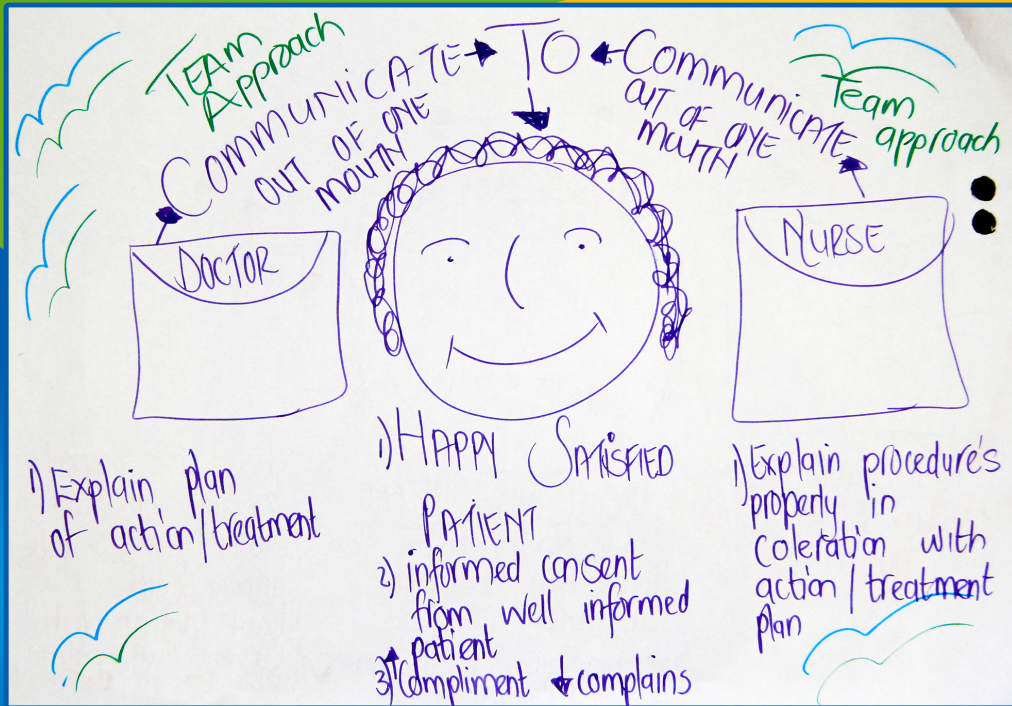 TEAM
APPROACH
COMMUNICATE
OUT OF ONE
MOUTH
TO
COMMUNICATE
OUT OF ONE
MOUTH
Team
approach
DOCTOR
NURSE
1) Explain plan
of action/treatment
1) HAPPY SATISFIED
PATIENT
2) informed consent
from well informed
patient
3) ↑ Compliment ↓ complains
1) Explain procedure's
properly in
coleration with
action/treatment
plan